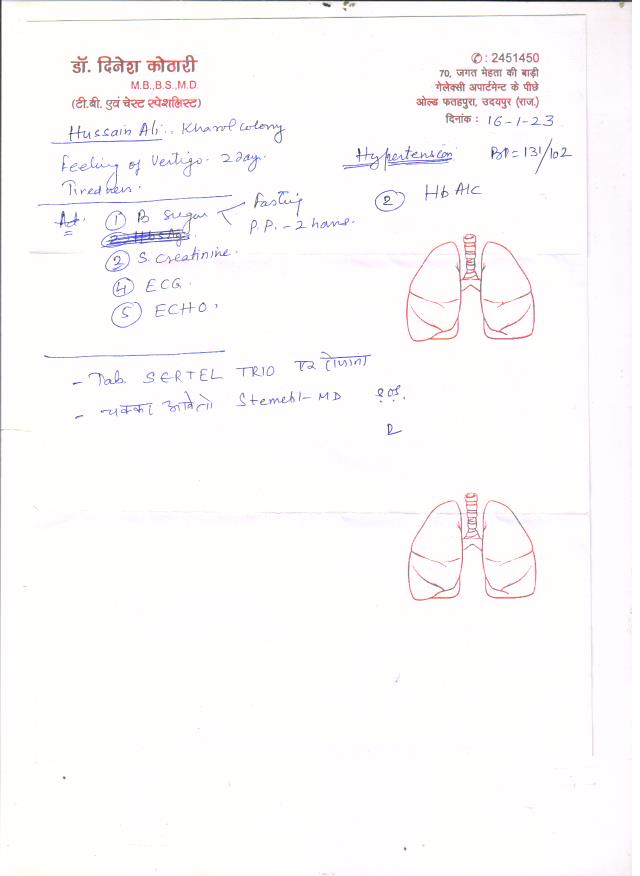 डॉ. दिनेश कोठारी
M.B.,B.S.,M.D.
(टी.बी. एवं चेस्ट स्पेशलिस्ट)
✆ : 2451450
70, जगत मेहता की बाड़ी
गेलेक्सी अपार्टमेन्ट के पीछे
ओल्ड फतहपुरा, उदयपुर (राज.)
दिनांक : 16-1-23
Hussain Ali. Kharol colony
Feeling of Vertigo. 2 day.
Hypertension BP = 131/102
Tiredness.
Ad.
① B Sugar Fasting
P.P. - 2 hours.
② HbA1C
③ S. Creatinine.
④ ECG.
⑤ ECHO.
- Tab. SERTEL TRIO एक रोजाना
- चक्कर आवे तो Stemetil-MD